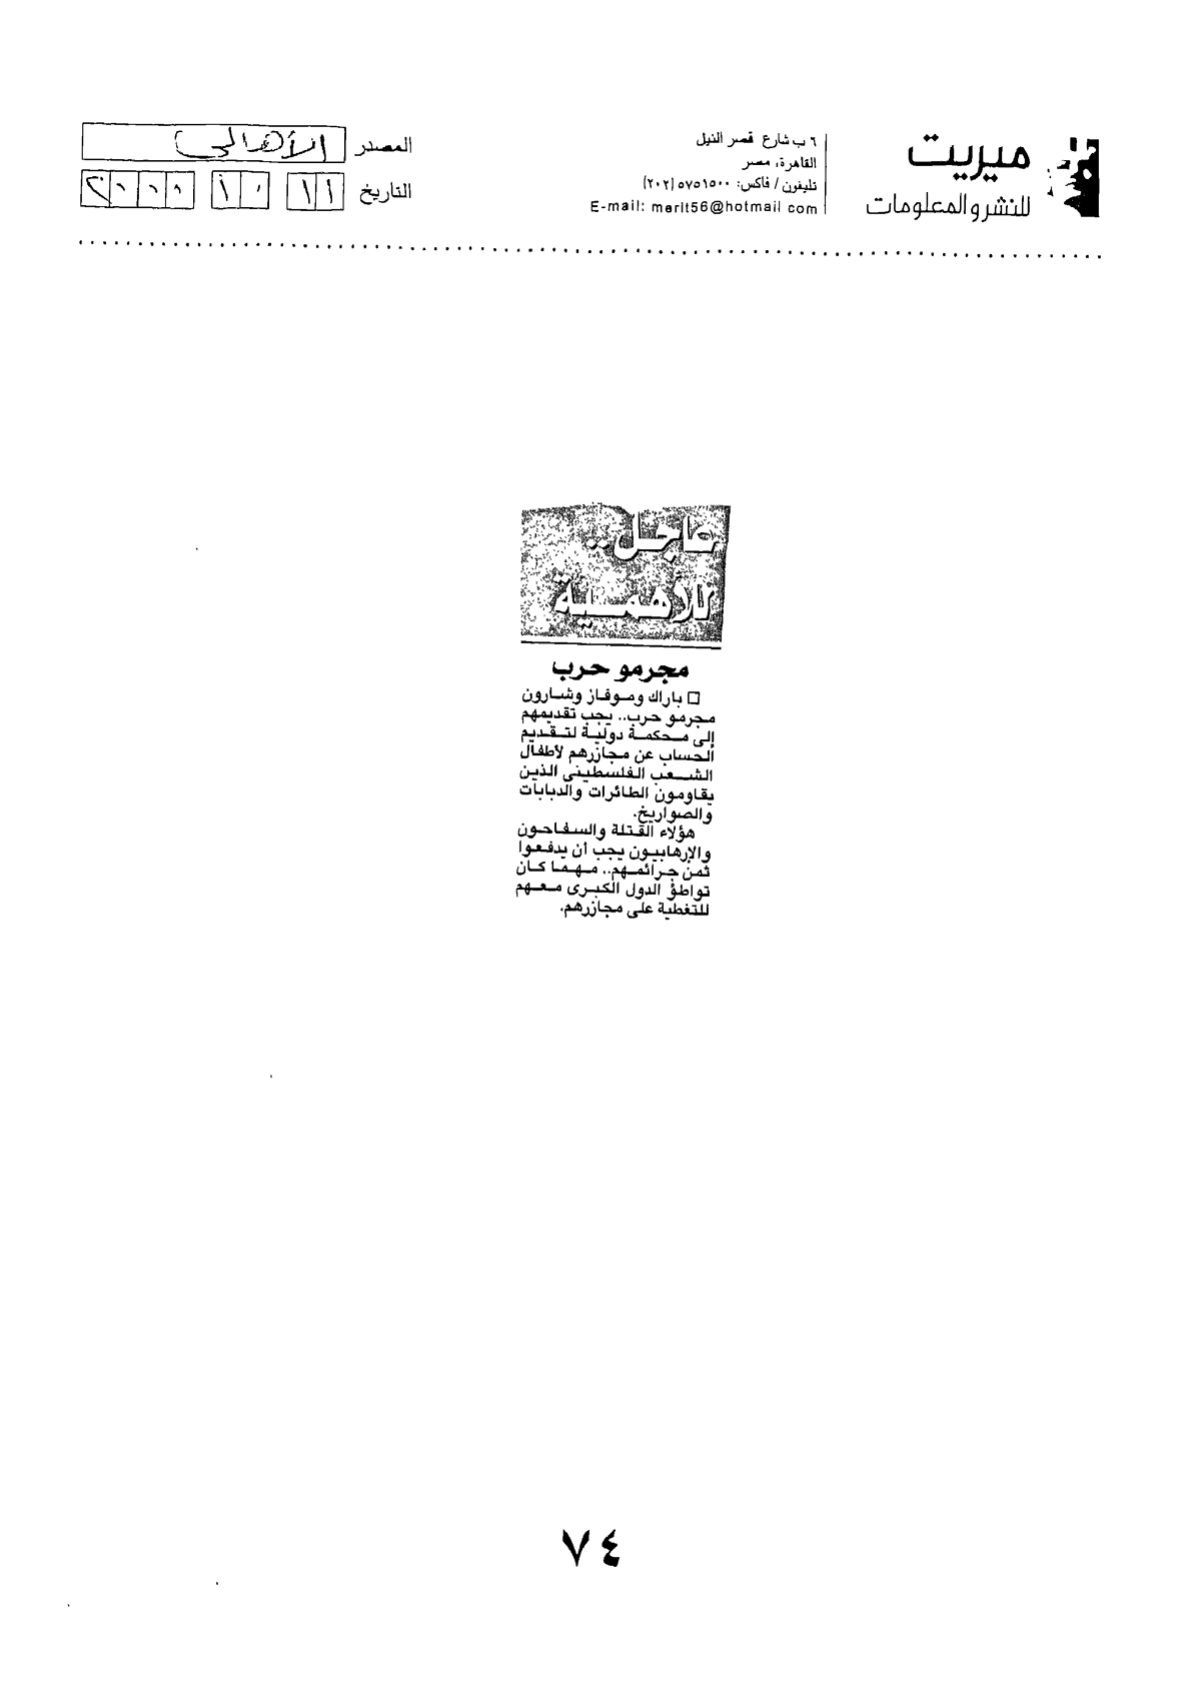 ميريت
للنشر والمعلومات
٦ ب شارع قصر النيل
القاهرة، مصر
تليفون / فاكس: ٥٧٥١٥٠٠ (٢٠٢)
E-mail: merit56@hotmail com
المصدر الأهالى
التاريخ ١١ ١٠ ٢٠٠٠
عاجل..
للأهمية
مجرمو حرب
□ باراك وموفاز وشارون
مجرمو حرب.. يجب تقديمهم
إلى محكمة دولية لتقديم
الحساب عن مجازرهم لأطفال
الشعب الفلسطينى الذين
يقاومون الطائرات والدبابات
والصواريخ.
هؤلاء القتلة والسفاحون
والإرهابيون يجب أن يدفعوا
ثمن جرائمهم.. مهما كان
تواطؤ الدول الكبرى معهم
للتغطية على مجازرهم.
٧٤